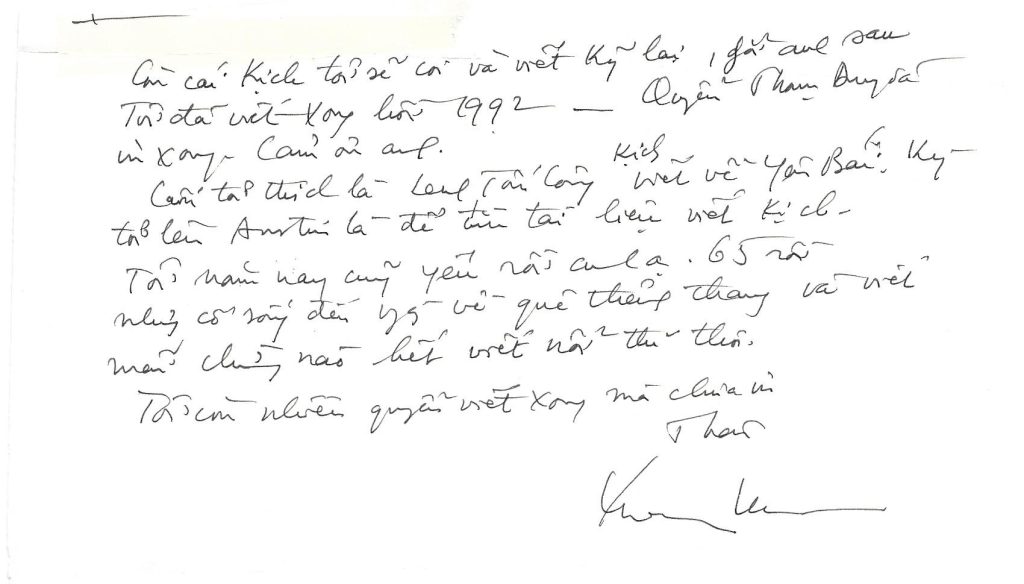 Còn cái Kịch tôi sẽ coi và viết kỹ lại, gửi anh sau
Tôi đã viết xong hồi 1992 — Quyển Phạm Duy đã
in xong. Cám ơn anh.
Cuốn tôi thích là Kịch viết về Yên Bái. Kỳ
tôi lên Austin là để tìm tài liệu viết Kịch.
Tôi năm nay cũng yếu rồi anh ạ. 65 rồi
nhưng cố sống đến về quê thang và viết
mãi chừng nào hết viết nổi thì thôi.
Tôi còn nhiều quyển viết xong mà chưa in
Thân